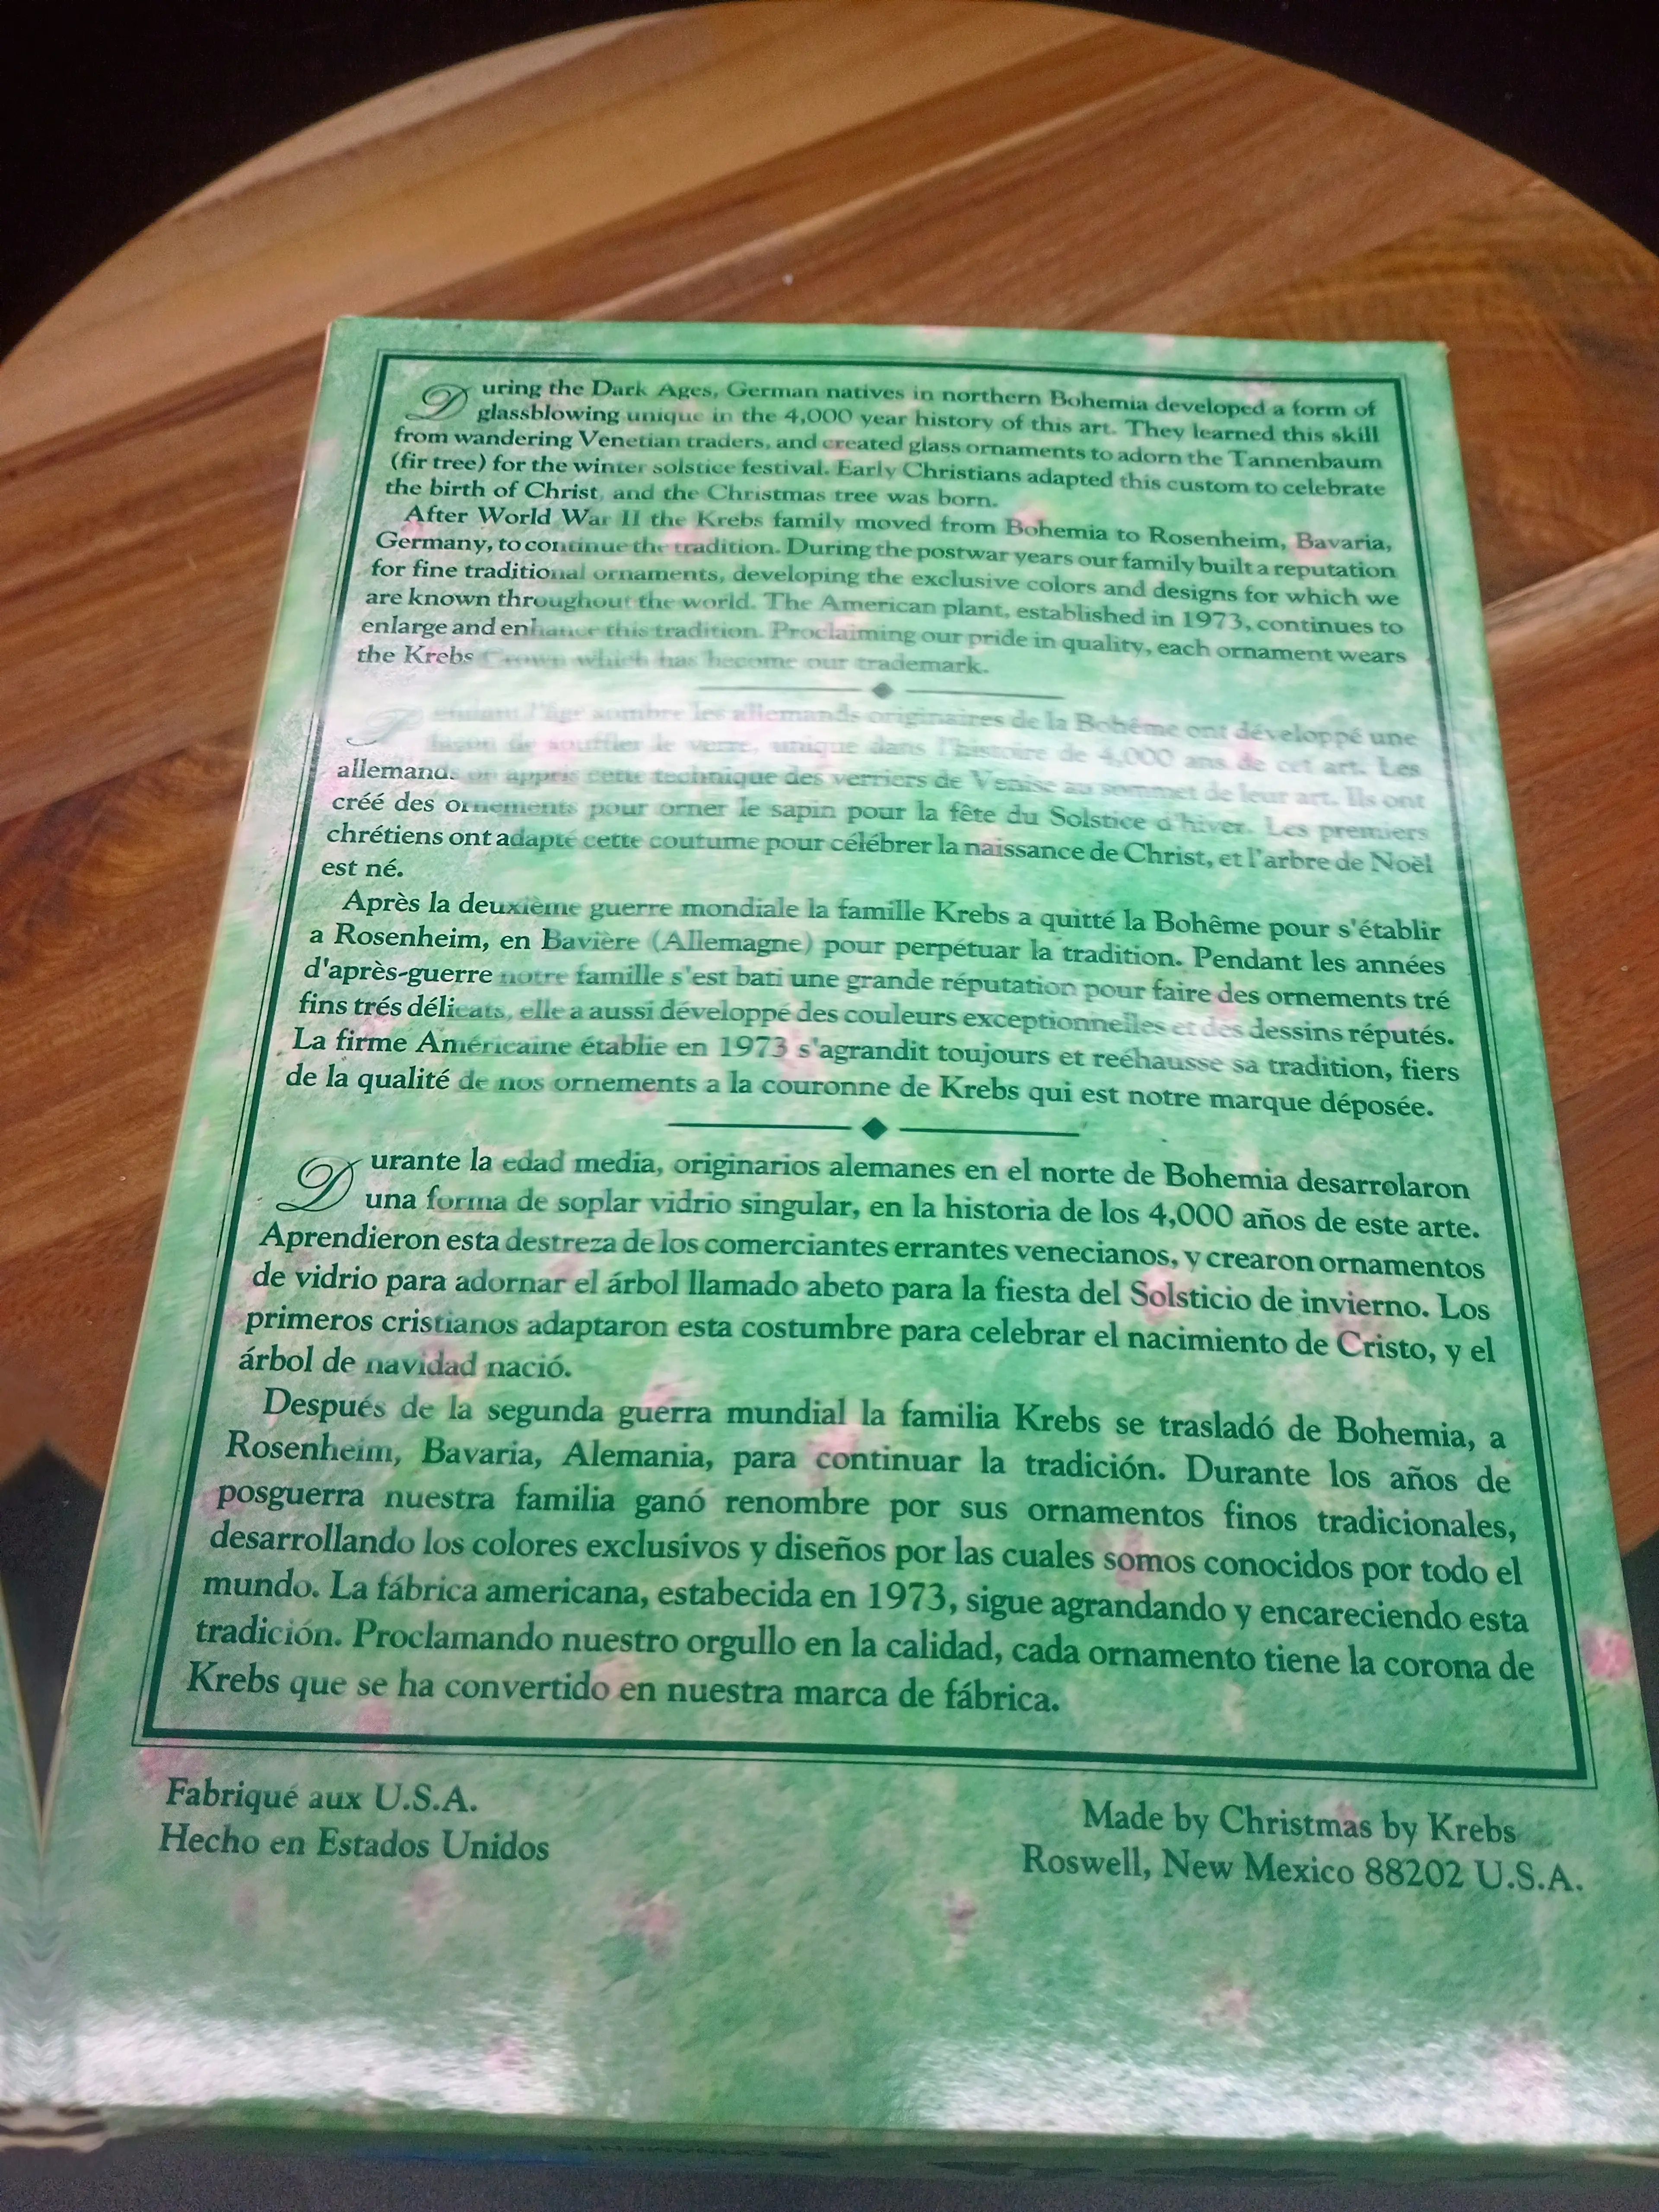 During the Dark Ages, German natives in northern Bohemia developed a form of
glassblowing unique in the 4,000 year history of this art. They learned this skill
from wandering Venetian traders, and created glass ornaments to adorn the Tannenbaum
(fir tree) for the winter solstice festival. Early Christians adapted this custom to celebrate
the birth of Christ, and the Christmas tree was born.
After World War II the Krebs family moved from Bohemia to Rosenheim, Bavaria,
Germany, to continue the tradition. During the postwar years our family built a reputation
for fine traditional ornaments, developing the exclusive colors and designs for which we
are known throughout the world. The American plant, established in 1973, continues to
enlarge and enhance this tradition. Proclaiming our pride in quality, each ornament wears
the Krebs Crown which has become our trademark.
Pendant l'âge sombre les allemands originaires de la Bohême ont développé une
de souffler le verre, unique dans l'histoire de 4,000 ans de cet art. Les
allemands on appris cette technique des verriers de Venise au sommet de leur art. Ils ont
créé des ornements pour orner le sapin pour la fête du Solstice d'hiver. Les premiers
chrétiens ont adapté cette coutume pour célébrer la naissance de Christ, et l'arbre de Noël
est né.
Après la deuxième guerre mondiale la famille Krebs a quitté la Bohême pour s'établir
a Rosenheim, en Bavière (Allemagne) pour perpétuar la tradition. Pendant les années
d'après-guerre notre famille s'est bati une grande réputation pour faire des ornements tré
fins trés délicats, elle a aussi développé des couleurs exceptionnelles et des dessins réputés.
La firme Américaine établie en 1973 s'agrandit toujours et reéhausse sa tradition, fiers
de la qualité de nos ornements a la couronne de Krebs qui est notre marque déposée.
Durante la edad media, originarios alemanes en el norte de Bohemia desarrolaron
una forma de soplar vidrio singular, en la historia de los 4,000 años de este arte.
Aprendieron esta destreza de los comerciantes errantes venecianos, y crearon ornamentos
de vidrio para adornar el árbol llamado abeto para la fiesta del Solsticio de invierno. Los
primeros cristianos adaptaron esta costumbre para celebrar el nacimiento de Cristo, y el
árbol de navidad nació.
Después de la segunda guerra mundial la familia Krebs se trasladó de Bohemia, a
Rosenheim, Bavaria, Alemania, para continuar la tradición. Durante los años de
posguerra nuestra familia ganó renombre por sus ornamentos finos tradicionales,
desarrollando los colores exclusivos y diseños por las cuales somos conocidos por todo el
mundo. La fábrica americana, estabecida en 1973, sigue agrandando y encareciendo esta
tradición. Proclamando nuestro orgullo en la calidad, cada ornamento tiene la corona de
Krebs que se ha convertido en nuestra marca de fábrica.
Fabriqué aux U.S.A.
Hecho en Estados Unidos
Made by Christmas by Krebs
Roswell, New Mexico 88202 U.S.A.